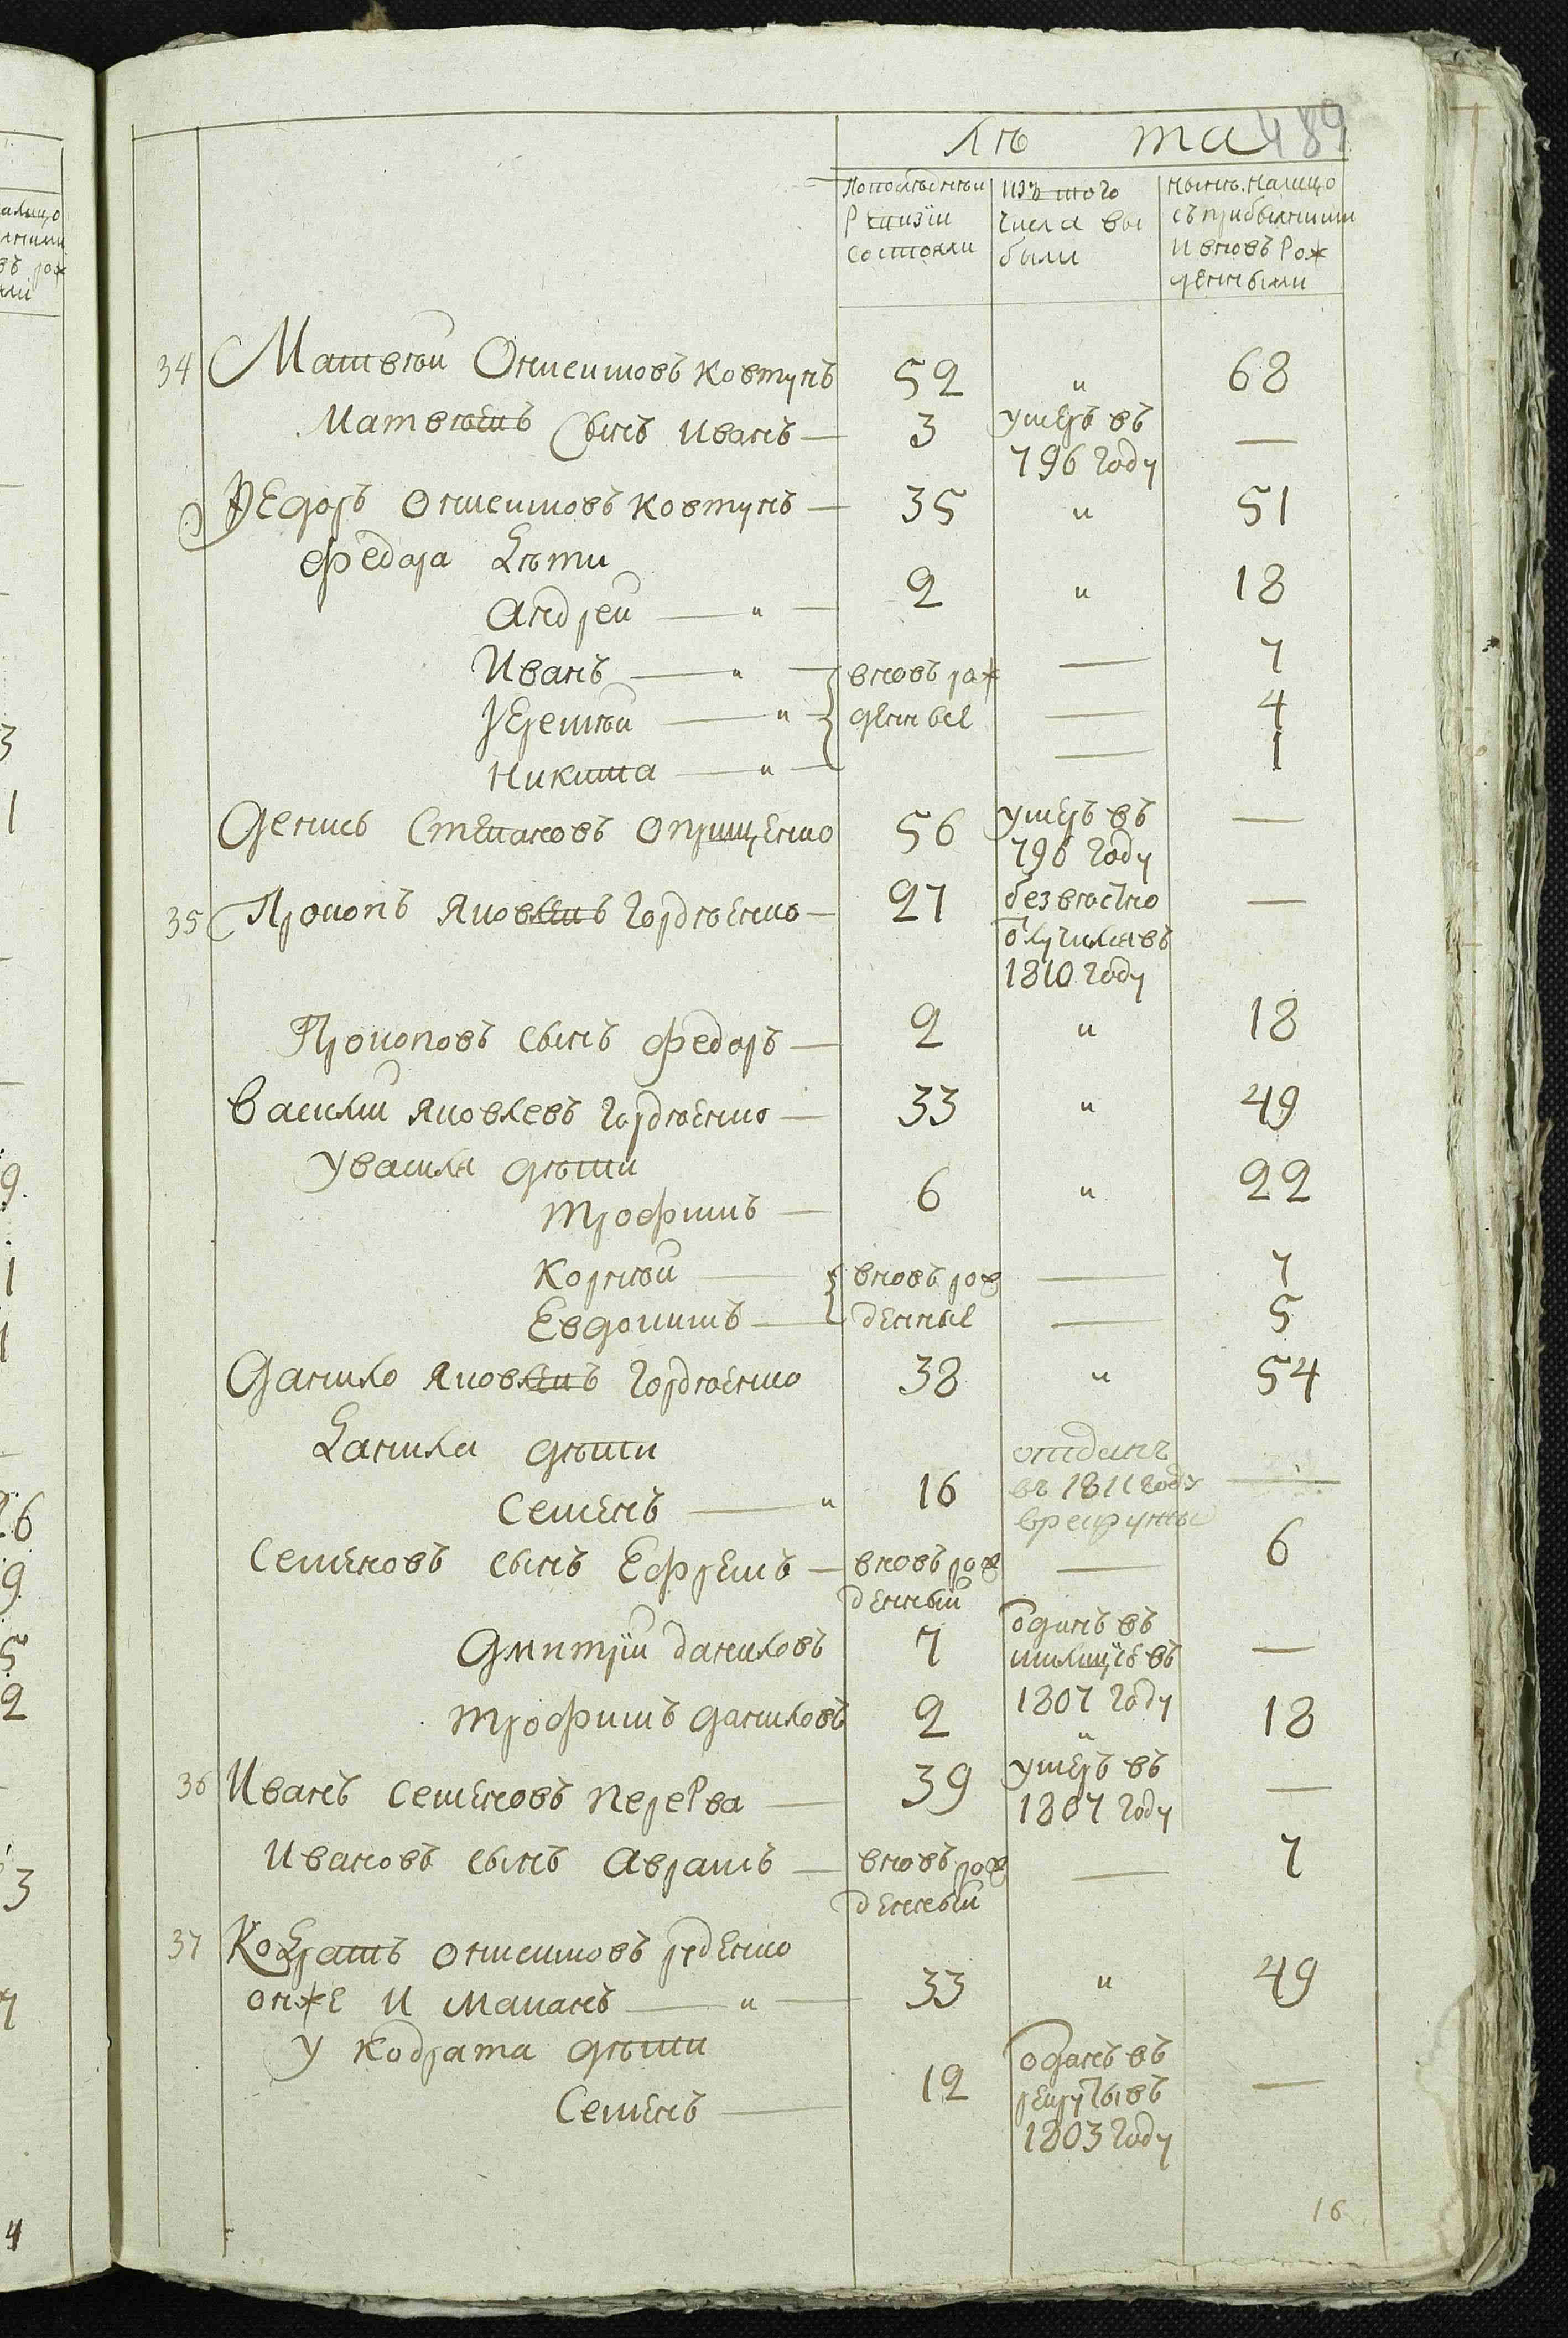 лѣ та 489
попослѣдней ревизіи состояли
изъ того числа выбыли
нынѣ налицо съ прибылыми и вновь рожденными
34 Матвѣй Онисимовъ Ковтунъ 52 " 68
Матвѣевъ сынъ Иванъ — 3 умеръ въ 796 году —
Федоръ Онисимовъ Ковтунъ — 35 " 51
Федора дѣти
Андрей — " — 2 " 18
Иванъ — " — вновь рож — 7
Еремѣй — " — денные — 4
Никита — " — — 1
Денисъ Степановъ Онищенко 56 умеръ въ 796 году —
35 Прокопъ Яковлевъ Гордѣенко — 27 безвѣстно отлучился въ 1810 году —
Прокоповъ сынъ Федоръ — 2 " 18
Василий Яковлевъ Гордѣенко — 33 " 49
У Василя дѣти
Трофимъ — 6 " 22
Корнѣй — вновь рож — 7
Евдокимъ — денные — 5
Данило Яковлевъ Гордѣенко 38 " 54
Данила дѣти
Семенъ — " 16 отданъ въ 1811 году врекруты —
Семеновъ сынъ Ефремъ — вновь рожденный — 6
Дмитрій Даниловъ 7 отданъ въ милицію въ 1807 году —
Трофимъ Даниловъ 2 " 18
36 Иванъ Семеновъ Перерва — 39 умеръ въ 1807 году —
Ивановъ сынъ Аврамъ — вновь рожденный — 7
37 Кодратъ Онисимовъ Руденко
онже и Маканъ — " — 33 " 49
У Кодрата дѣти
Семенъ — 12 отданъ въ рекруты въ 1803 году —
16